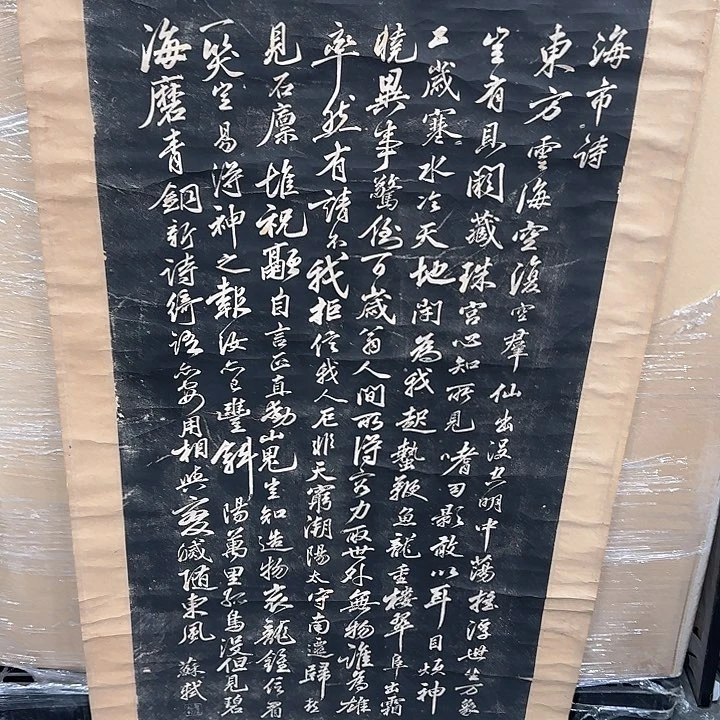 海市詩
東方雲海空復空群仙出没空明中蕩搖浮世生万象
豈有貝闕藏珠宮心知所見皆幻影敢以耳目煩神
工歲寒水冷天地閉為我起蟄鞭魚龍重樓翠阜出霜
曉異事驚倒百歲翁人間所得容力取世外無物誰為雄
率然有請不我拒信我人厄非天窮潮陽太守南遷歸喜
見石廩堆祝融自言正直動山鬼豈知造物哀龍鍾信眉
一笑豈易得神之報汝亦已豐斜陽萬里孤鳥没但見碧
海磨青銅新詩綺語亦安用相與變滅隨東風 蘇軾